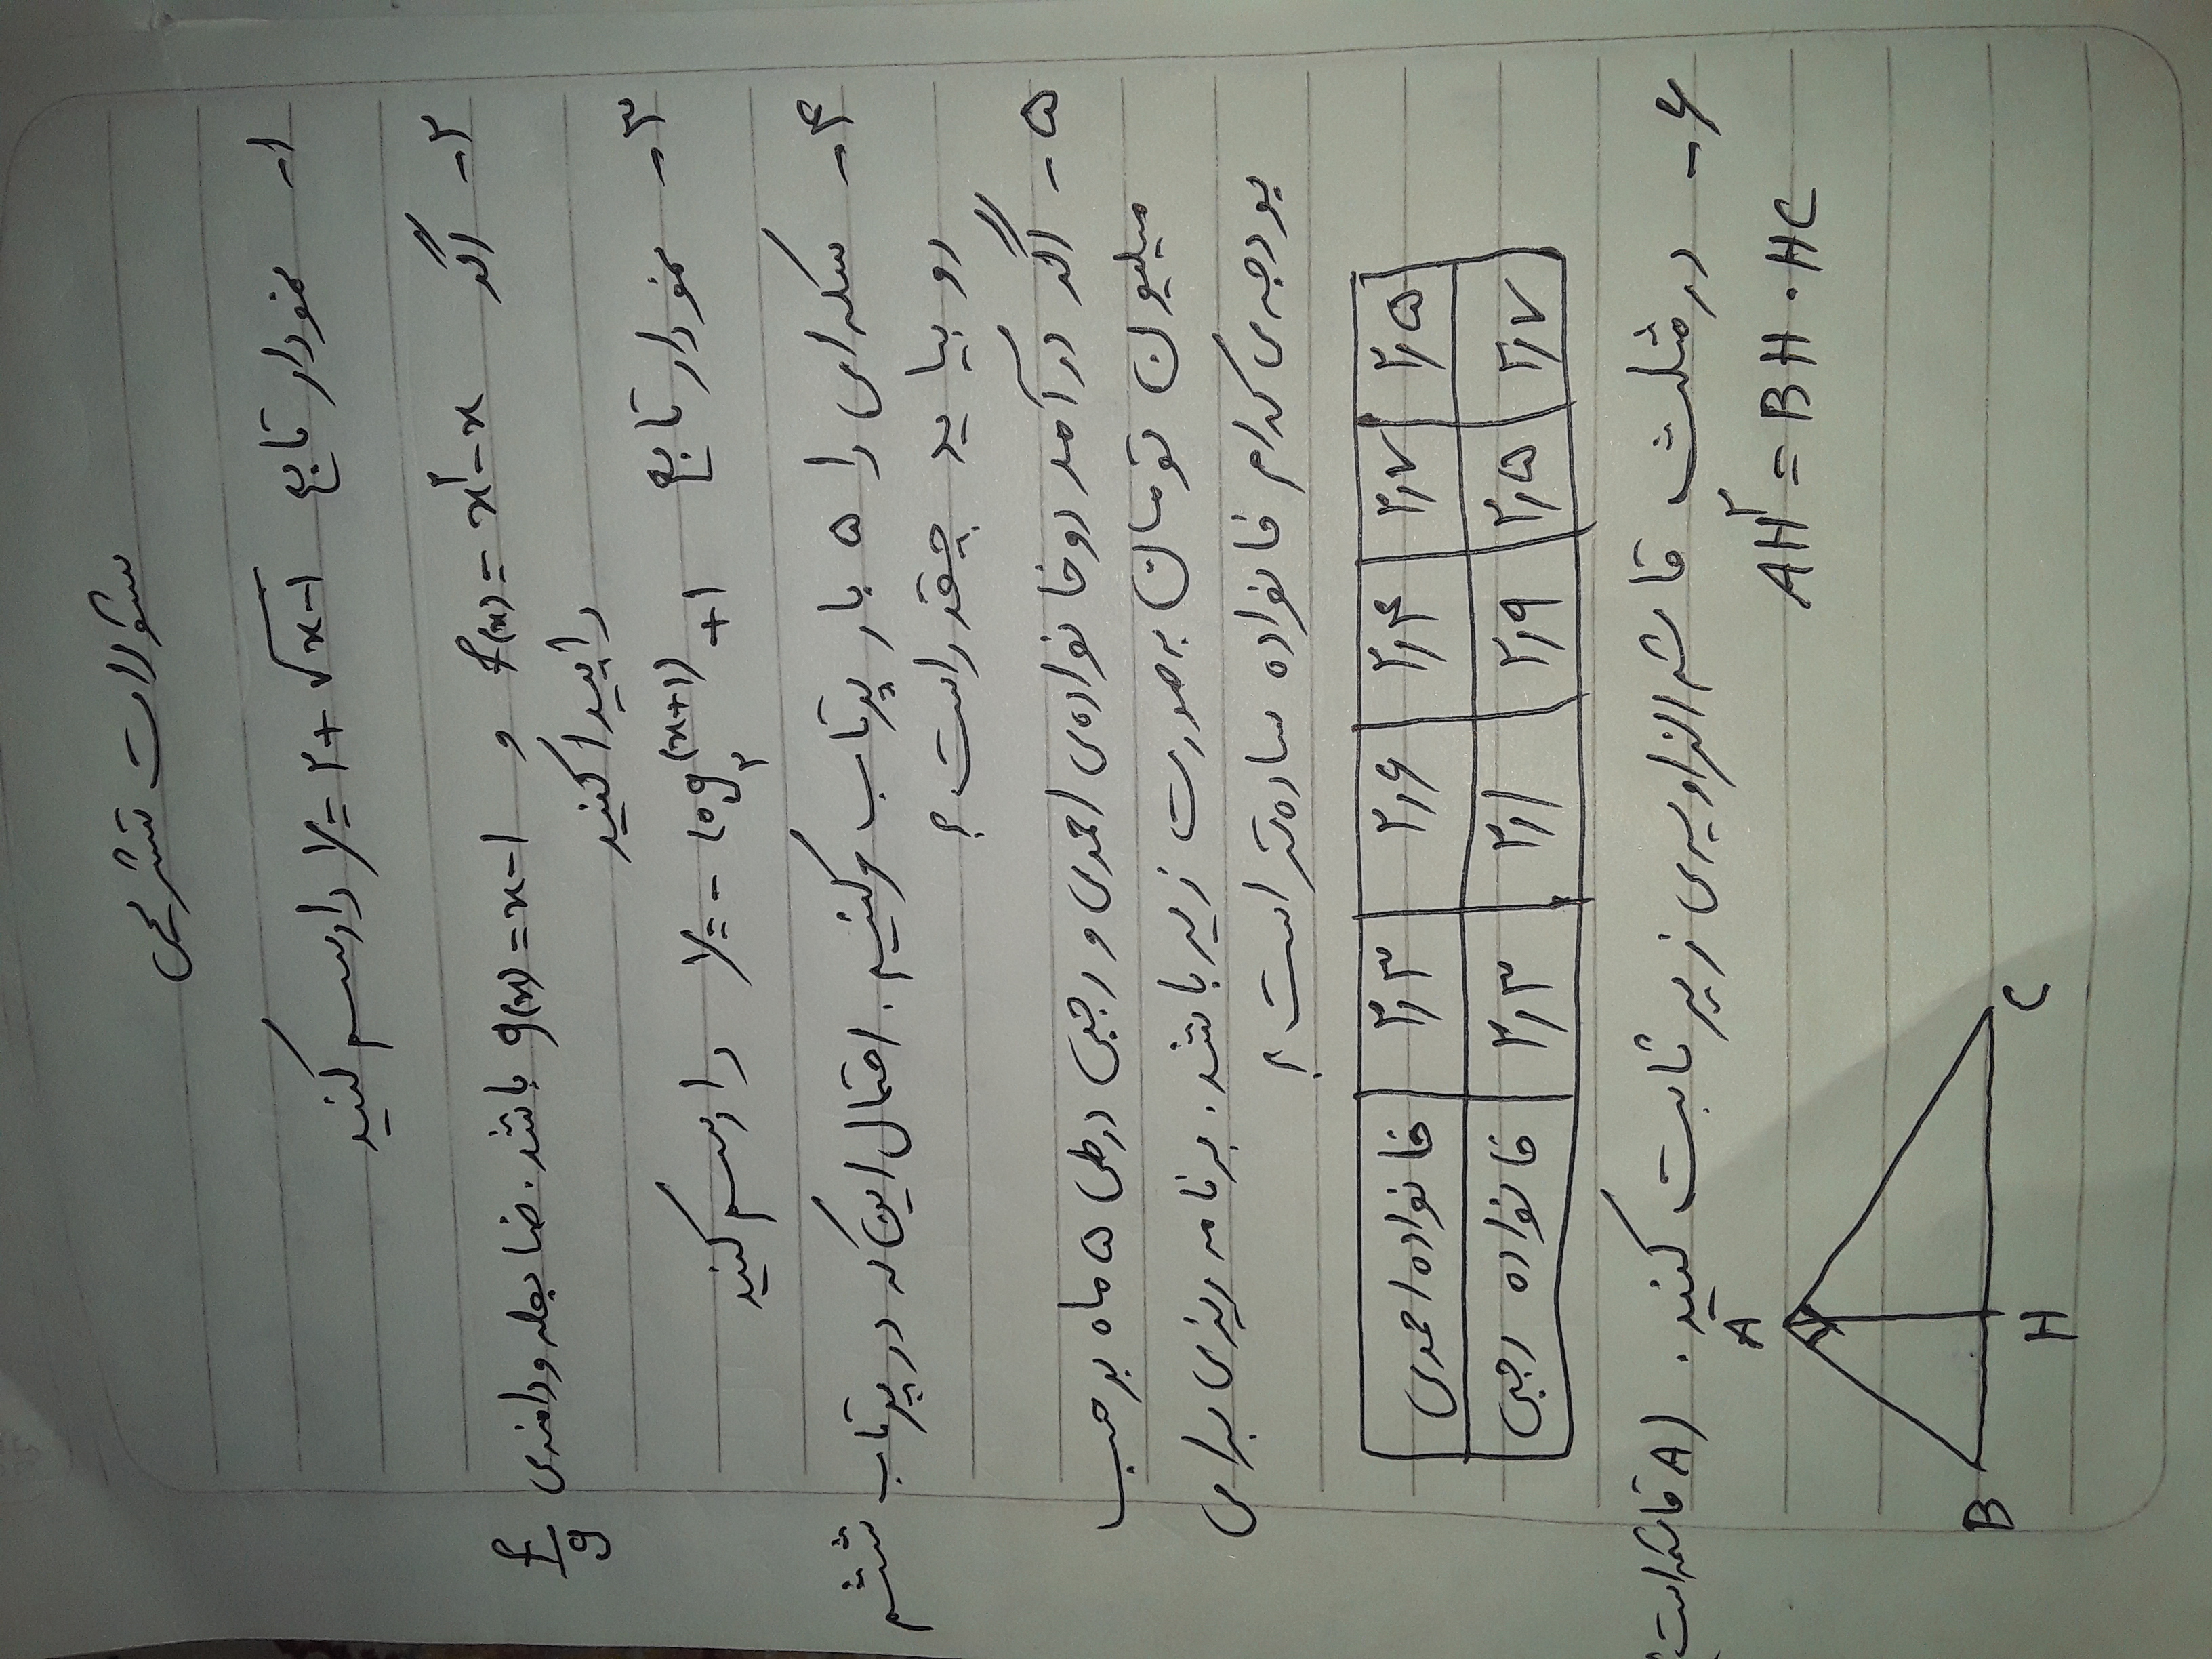 سئوالات تشریحی
۱- نمودار تابع y = ۲ + √x-۱ را رسم کنید
۲- اگر f(x) = x² - x و g(x) = x-۱ باشد. ضابطه و دامنه‌ی f/g
را پیدا کنید
۳- نمودار تابع y = - log₂^(x+۱) + ۱ را رسم کنید
۴- سکه‌ای را ۵ بار پرتاب می‌کنیم. احتمال این که در پرتاب ششم
رو بیاید چقدر است؟
۵- اگر درآمد دو خانواده‌ی احمدی و رجبی در طی ۵ ماه بر حسب
میلیون تومان به صورت زیر باشد. برنامه ریزی برای
بودجه‌ی کدام خانواده ساده‌تر است؟
خانواده احمدی ۲٫۳ ۲٫۶ ۲٫۴ ۲٫۷ ۲٫۵
خانواده رجبی ۲٫۳ ۲٫۱ ۲٫۹ ۲٫۵ ۲٫۷
۶- در مثلث قائم الزاویه‌ی زیر ثابت کنید. (A قائمه است)
AH² = BH · HC
A
B
C
H